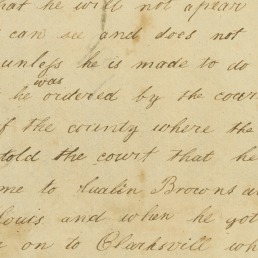 hat he will not apear
can see and does not
unless he is made to do
was
he ordered by the cour
f the county where the
told the court that he
me to Browns a
ouis, and when he got
on to Clarksvill wh